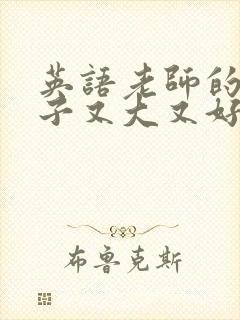 英語老師的
子又大又好
布魯克斯